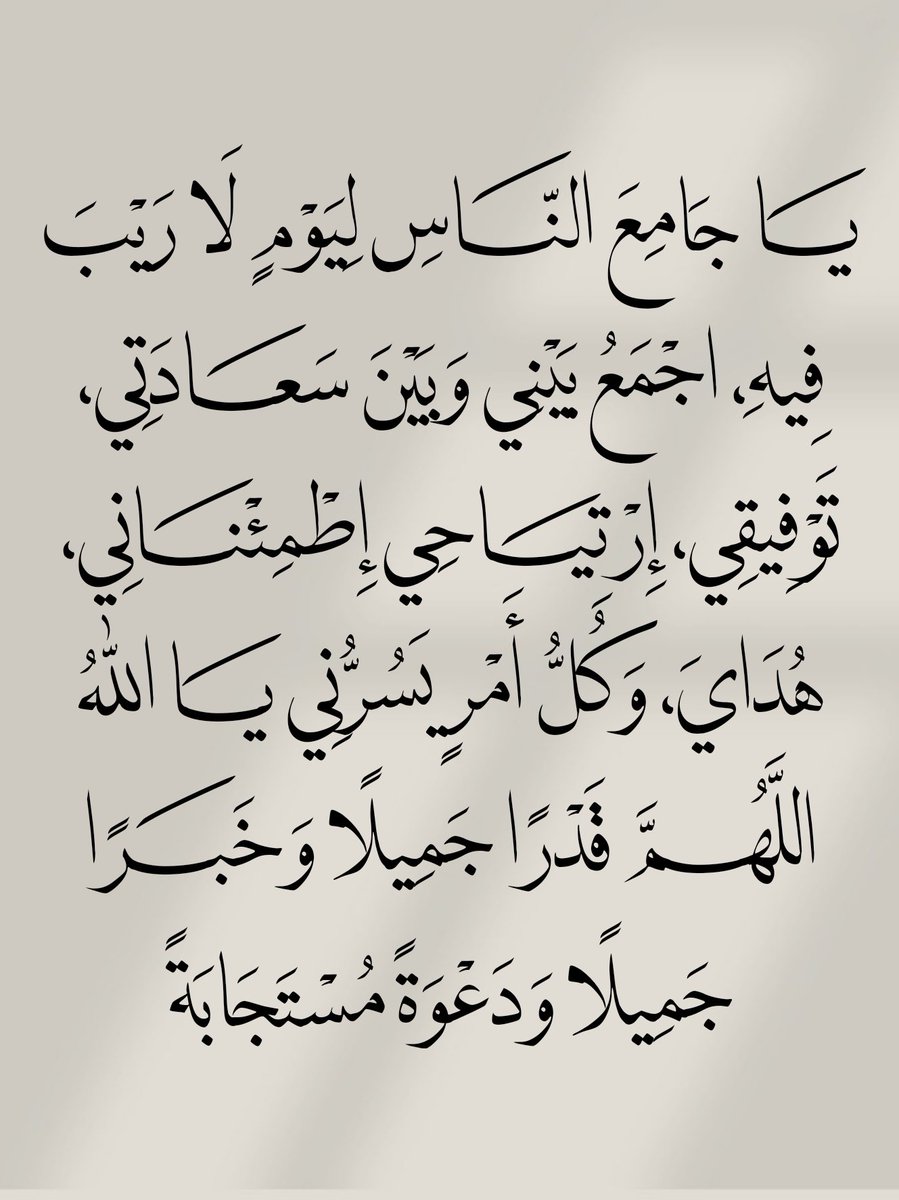 يَا جَامِعَ النَّاسِ لِيَوْمٍ لَا رَيْبَ
فِيهِ، اجْمَعُ بَيْنِي وَبَيْنَ سَعَادَتِي،
تَوْفِيقِي، إِرْتيَاحِي إِطْمِئْنَانِي،
هُدَايَ، وَكُلُّ أَمْرٍ يَسُرُّنِي يَا اللهُ
اللَّهُمَّ قَدْرًا جَمِيلًا وَخَبَرًا
جَمِيلًا وَدَعْوَةً مُسْتَجَابَةً